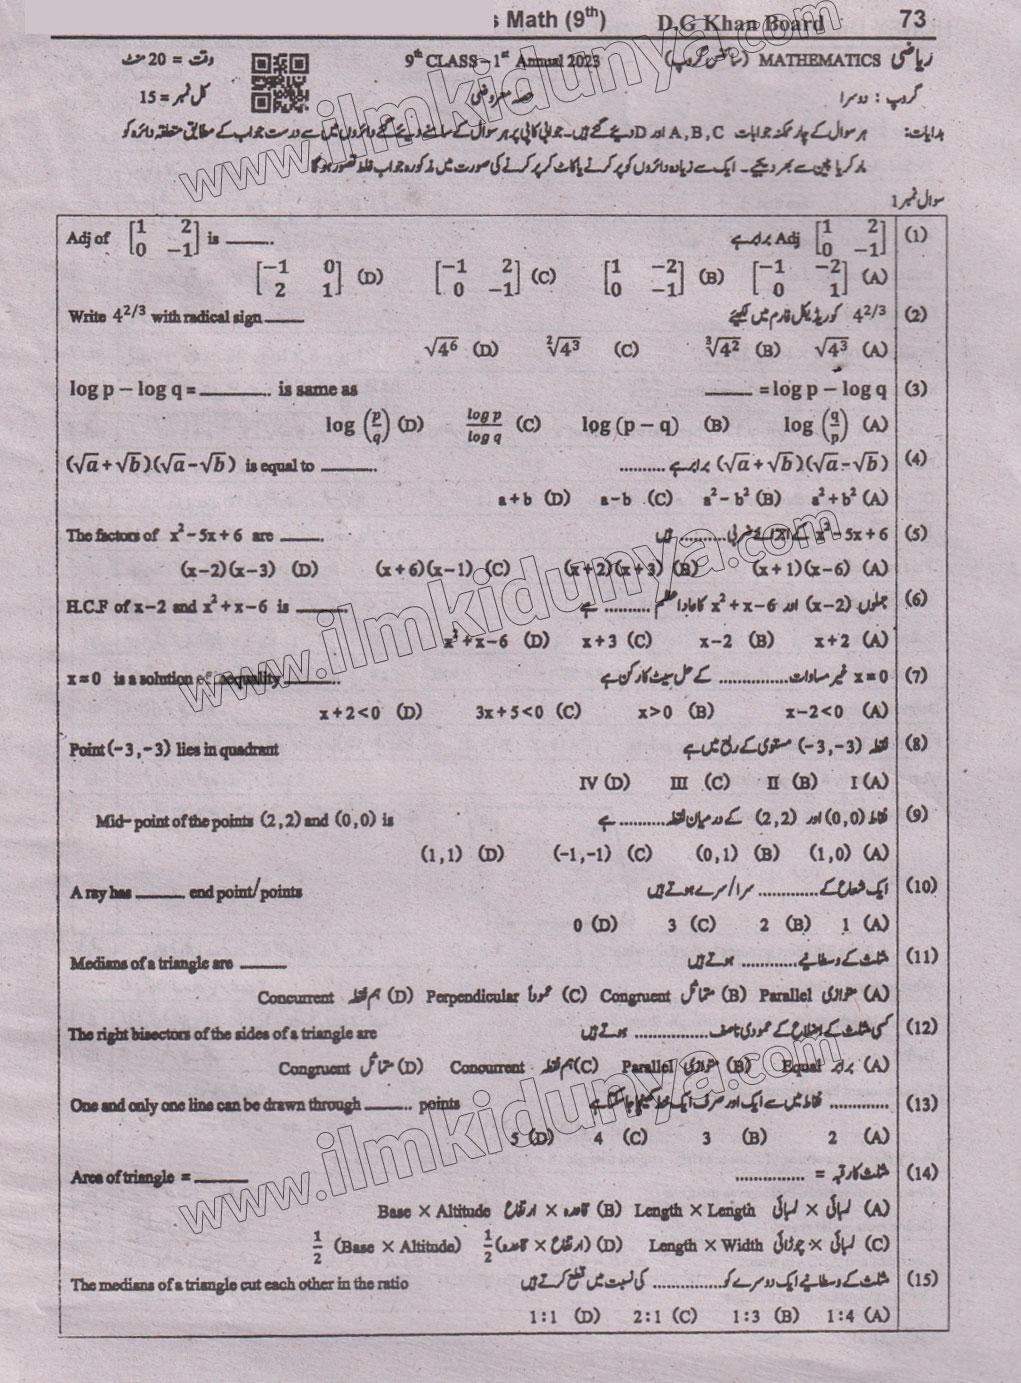 s Math (9th) D.G Khan Board 73
ریاضی MATHEMATICS (سائنس گروپ) 9th CLASS – 1st Annual 2023 وقت = 20 منٹ
گروپ : دوسرا حصہ معروضی کل نمبر = 15
ہدایات: ہر سوال کے چار ممکنہ جوابات A, B, C اور D دیے گئے ہیں۔ جوابی کاپی پر ہر سوال کے سامنے دیے گئے دائروں میں سے درست جواب کے مطابق متعلقہ دائرہ کو
مارکر یا پین سے بھر دیجیے۔ ایک سے زیادہ دائروں کو پر کرنے یا کاٹ کر پر کرنے کی صورت میں مذکورہ جواب غلط تصور ہوگا
سوال نمبر 1
(1) Adj [1 2; 0 −1] برابر ہے Adj of [1 2; 0 −1] is ______.
(A) [−1 −2; 0 1] (B) [1 −2; 0 −1] (C) [−1 2; 0 −1] (D) [−1 0; 2 1]
(2) 4^2/3 کو ریڈیکل فارم میں لکھیے Write 4^2/3 with radical sign ______
(A) √4³ (B) ∛4² (C) ²√4³ (D) √4⁶
(3) ______ = log p − log q log p − log q = ______. is same as
(A) log (q/p) (B) log (p − q) (C) log p / log q (D) log (p/q)
(4) (√a + √b)(√a − √b) برابر ہے .......... (√a + √b)(√a − √b) is equal to ______.
(A) a² + b² (B) a² − b² (C) a − b (D) a + b
(5) x² − 5x + 6 کے اجزائے ضربی .......... ہیں The factors of x² − 5x + 6 are ______.
(A) (x + 1)(x − 6) (B) (x + 2)(x + 3) (C) (x + 6)(x − 1) (D) (x − 2)(x − 3)
(6) جملوں (x − 2) اور x² + x − 6 کا عاد اعظم .......... ہے H.C.F of x − 2 and x² + x − 6 is ______.
(A) x + 2 (B) x − 2 (C) x + 3 (D) x² + x − 6
(7) x = 0 غیر مساوات .............. کے حل سیٹ کا رکن ہے x = 0 is a solution of inequality ______.
(A) x − 2 < 0 (B) x > 0 (C) 3x + 5 < 0 (D) x + 2 < 0
(8) نقطہ (−3, −3) مستوی کے ربع میں ہے Point (−3, −3) lies in quadrant
(A) I (B) II (C) III (D) IV
(9) نقاط (0,0) اور (2,2) کے درمیانی نقطہ .......... ہے Mid-point of the points (2,2) and (0,0) is
(A) (1,0) (B) (0,1) (C) (−1,−1) (D) (1,1)
(10) ایک شعاع کے ............. سرا/سرے ہوتے ہیں A ray has ______ end point/points
(A) 1 (B) 2 (C) 3 (D) 0
(11) مثلث کے وسطانیے ............ ہوتے ہیں Medians of a triangle are ______
(A) متوازی Parallel (B) متماثل Congruent (C) عموداً Perpendicular (D) ہم نقطہ Concurrent
(12) کسی مثلث کے اضلاع کے عمودی ناصف ................ ہوتے ہیں The right bisectors of the sides of a triangle are
(A) برابر Equal (B) متوازی Parallel (C) ہم نقطہ Concurrent (D) متماثل Congruent
(13) ............. نقاط میں سے ایک اور صرف ایک خط کھینچا جا سکتا ہے One and only one line can be drawn through ______. points
(A) 2 (B) 3 (C) 4 (D) 5
(14) مثلث کا رقبہ = ............... Area of triangle = ______
(A) لمبائی × لمبائی Length × Length (B) قاعدہ × ارتفاع Base × Altitude
(C) لمبائی × چوڑائی Length × Width (D) 1/2 (ارتفاع × قاعدہ) 1/2 (Base × Altitude)
(15) مثلث کے وسطانیے ایک دوسرے کو .............. کی نسبت میں قطع کرتے ہیں The medians of a triangle cut each other in the ratio
(A) 1:4 (B) 1:3 (C) 2:1 (D) 1:1
www.ilmkidunya.com
www.ilmkidunya.com
www.ilmkidunya.com